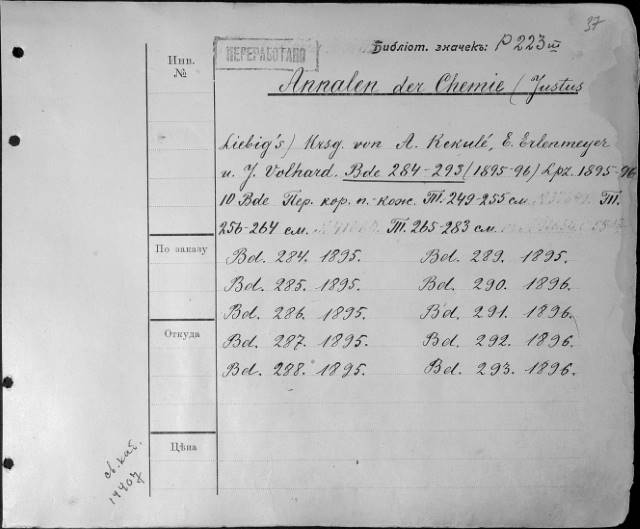 37
ПЕРЕРАБОТАНО
Библіот. значекъ: P 223 III
Инв.
№
Annalen der Chemie (Justus
Liebig's) Hrsg. von A. Kekulé, E. Erlenmeyer
u. J. Volhard. Bde 284-293 (1895-96) Lpz. 1895-96
10 Bde Пер. кор. п.-кож. Т.Т. 249-255 см. Т.Т.
256-264 см. Т.Т. 265-283 см.
По заказу
Bd. 284. 1895. Bd. 289. 1895.
Bd. 285. 1895. Bd. 290. 1896.
Bd. 286. 1895. Bd. 291. 1896.
Откуда
Bd. 287. 1895. Bd. 292. 1896.
Bd. 288. 1895. Bd. 293. 1896.
Цѣна
св. кат.